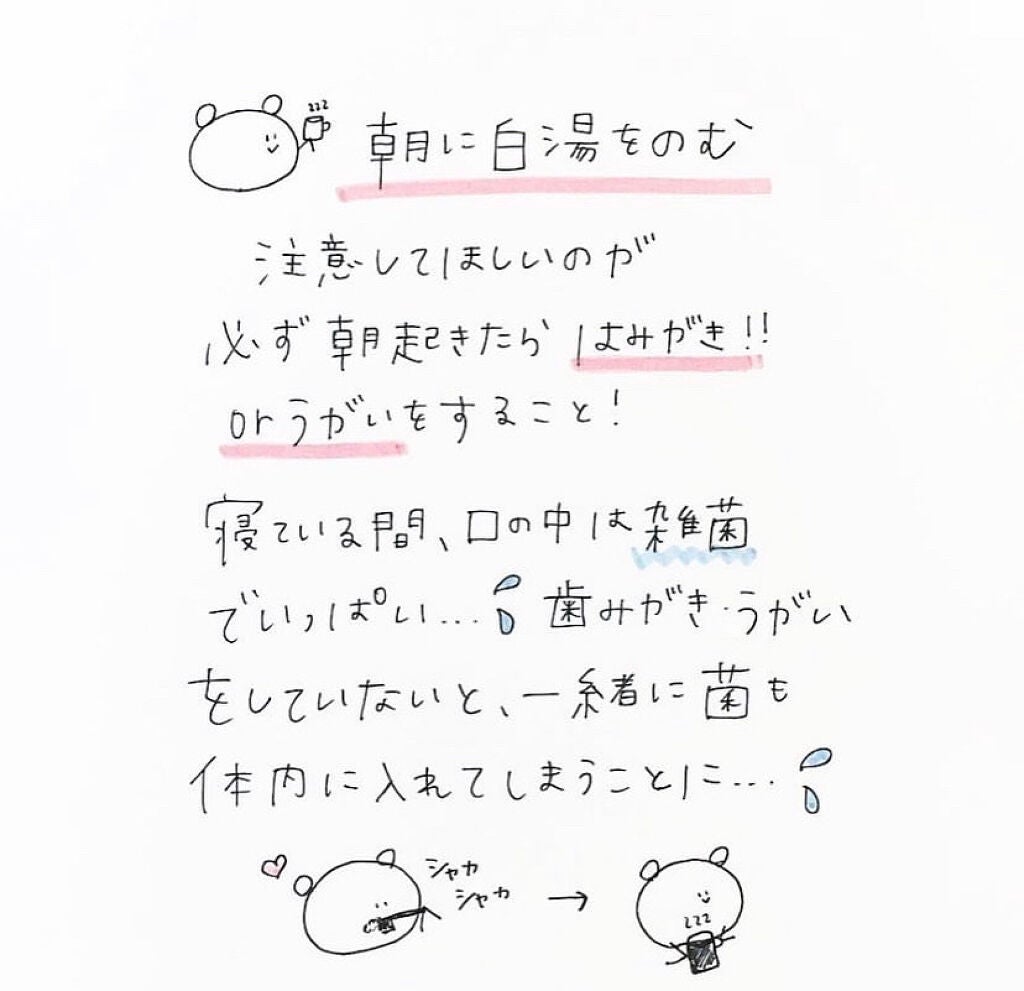 朝に白湯をのむ
注意してほしいのが
必ず朝起きたらはみがき!!
orうがいをすること!
寝ている間、口の中は雑菌
でいっぱい... 歯みがき・うがい
をしていないと、一緒に菌も
体内に入れてしまうことに...
シャカ
シャカ